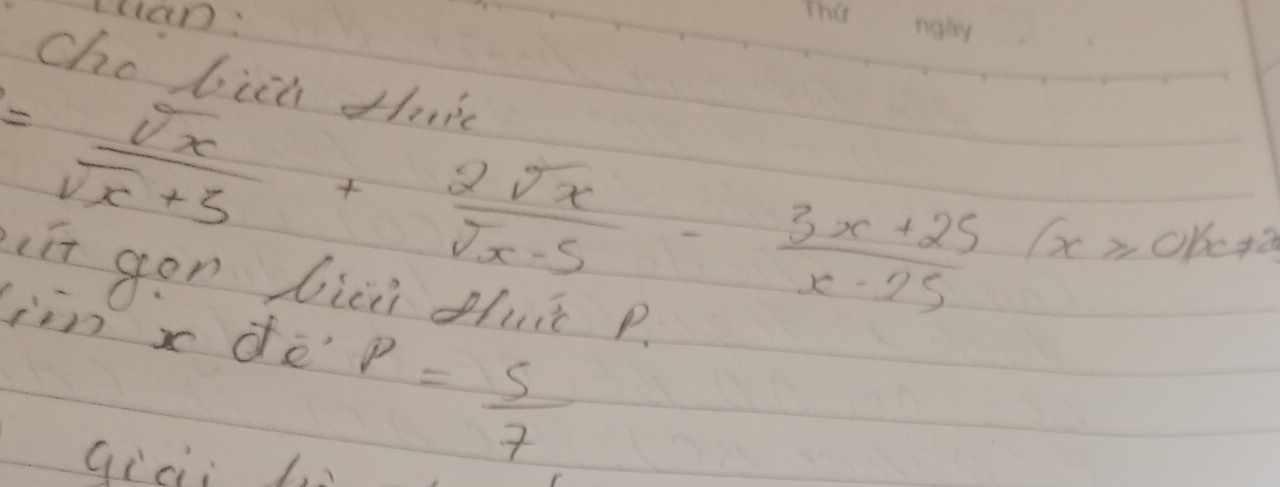 Thứ ngày
Cho biểu thức
= √x / (√x + 5) + 2√x / (√x - 5) - (3x + 25) / (x - 25) (x ≥ 0
gọn biểu thức P.
x để P = 5/7
Giải